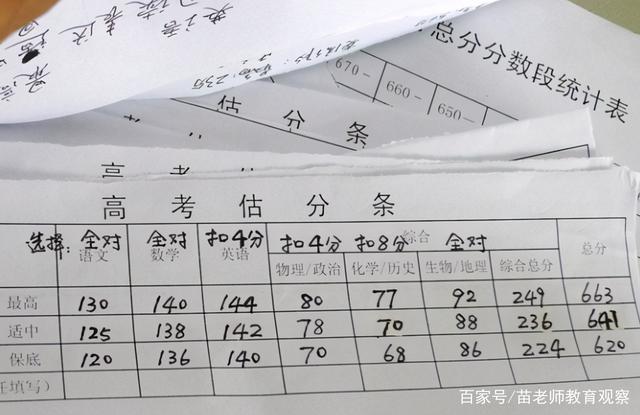 英语
表达
总分分数段统计表
670-
660-
650-
估 分 条
高 考
高 考 估 分 条
选择: 全对 全对 扣4分 扣4分 扣8分 全对
综合
语文 数学 英语 物理/政治 化学/历史 生物/地理 综合总分 总分
最高 130 140 144 80 77 92 249 663
适中 125 138 142 78 70 88 236 641
保底 120 136 140 70 68 86 224 620
填写)
百家号/苗老师教育观察